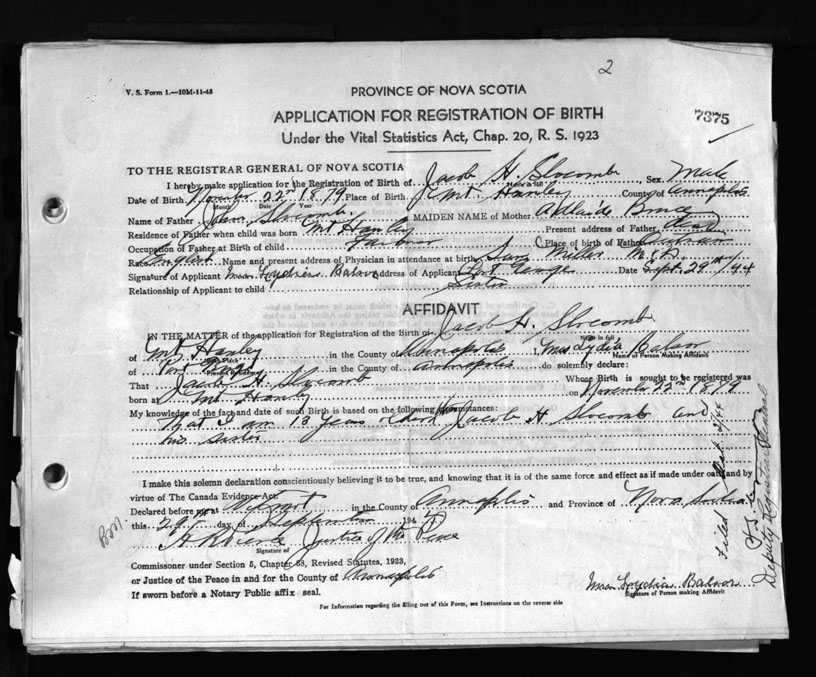 2
V. S. Form 1.—10M-11-43
PROVINCE OF NOVA SCOTIA
APPLICATION FOR REGISTRATION OF BIRTH
7375
Under the Vital Statistics Act, Chap. 20, R. S. 1923
TO THE REGISTRAR GENERAL OF NOVA SCOTIA
I hereby make application for the Registration of Birth of Jacob H. Slocomb Sex Male
Name in full
Date of Birth 22nd 1879 Place of Birth Mt. Hanley County of Annapolis
Month Date Year
Name of Father Slocomb MAIDEN NAME of Mother Adelaide
Residence of Father when child was born Mt Hanley Present address of Father
Occupation of Father at Birth of child Farmer Place of birth of Father
Name and present address of Physician in attendance at birth Miller M.D.
Signature of Applicant Mrs Lydia Balsor Address of Applicant Port Date Sept. 29th/44
Relationship of Applicant to child Sister
AFFIDAVIT
IN THE MATTER of the application for Registration of the Birth of Jacob H. Slocomb
Name in full
of Mt Hanley in the County of Annapolis, Mrs Lydia Balsor
Name of Person Making Affidavit
of Port in the County of Annapolis do solemnly declare:
That Jacob H. Slocomb Whose Birth is sought to be registered was
born at Mt Hanley on November 22nd 1879
My knowledge of the fact and date of such Birth is based on the following circumstances:
That I am 13 years older than Jacob H Slocomb and
his sister
I make this solemn declaration conscientiously believing it to be true, and knowing that it is of the same force and effect as if made under oath and by
virtue of The Canada Evidence Act.
Declared before me at in the County of Annapolis and Province of Nova Scotia
this 29th day of September 194
Justice of the Peace
Signature of
Commissioner under Section 5, Chapter 53, Revised Statutes, 1923,
or Justice of the Peace in and for the County of Annapolis
If sworn before a Notary Public affix seal.
Mrs Lydia Balsor
Signature of Person making Affidavit
For Information regarding the filling out of this Form, see Instructions on the reverse side
Filed Oct.
Deputy Registrar General